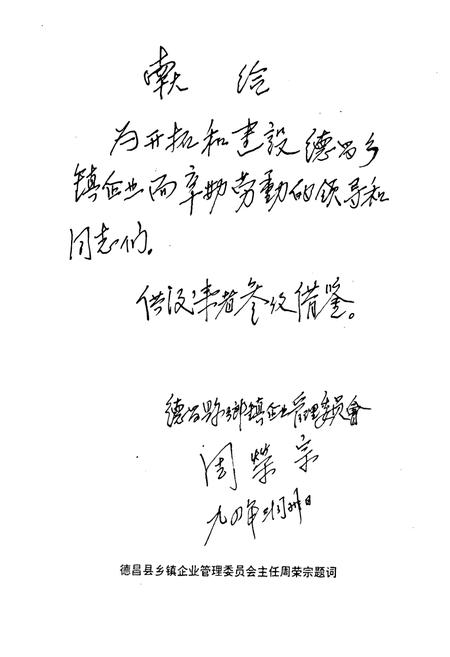 献给
为开拓和建设德昌乡
镇企业而辛勤劳動的领导和
同志们。
供后来者参攷借鉴。
德昌县乡鎮企业管理委员會
周荣宗
九四年二月廿日
德昌县乡镇企业管理委员会主任周荣宗题词